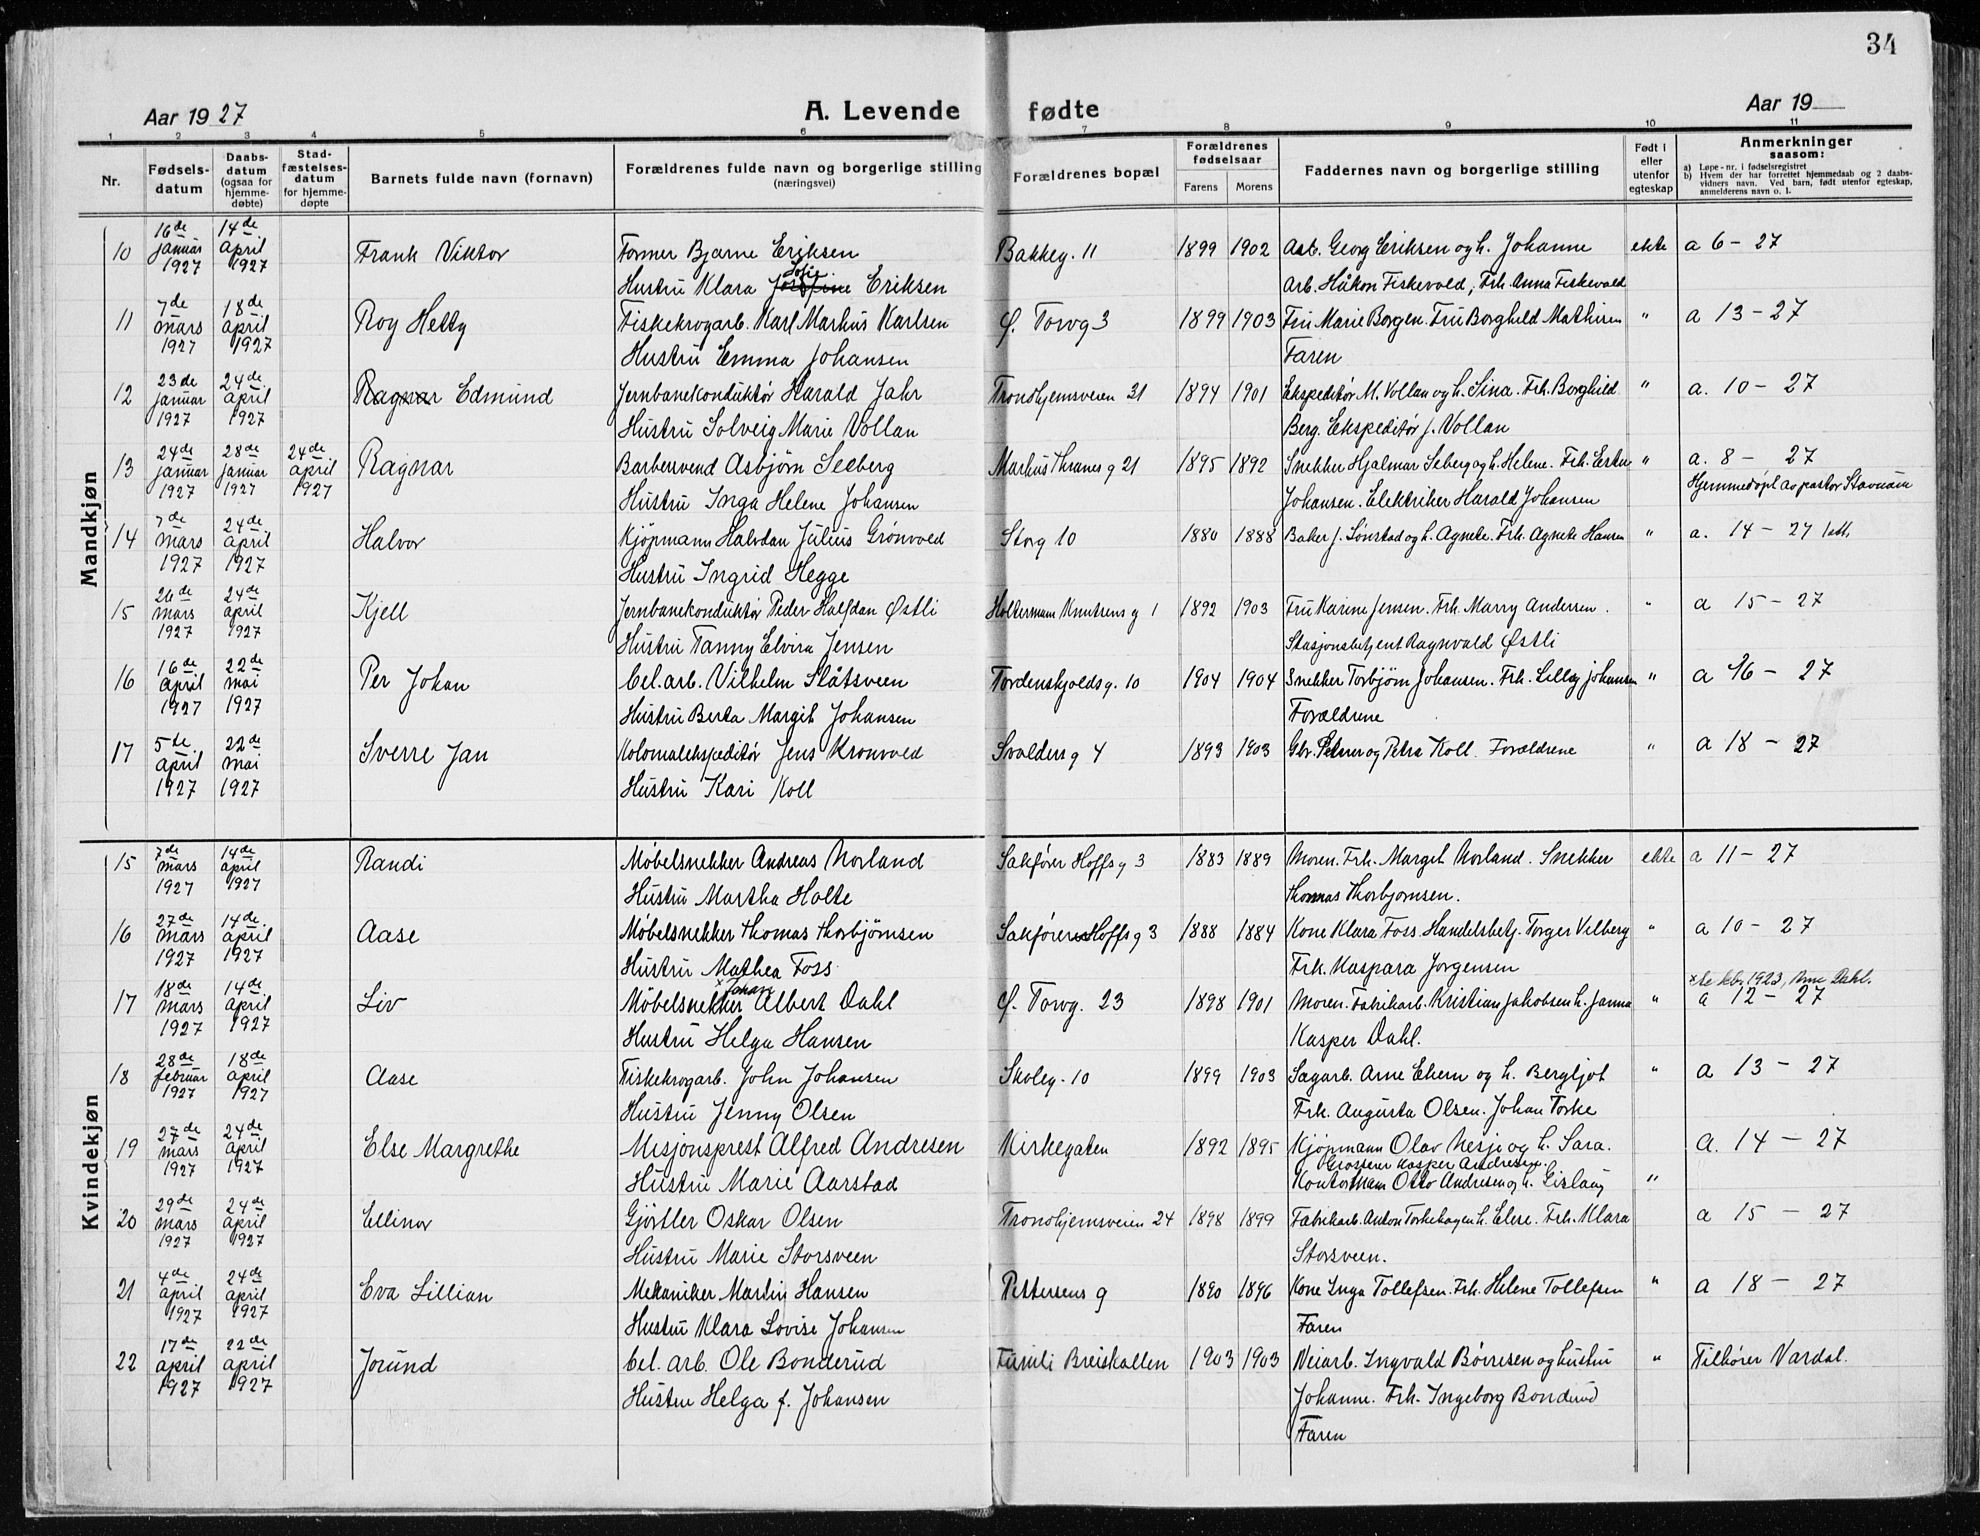 34
Aar 1927 A. Levende fødte Aar 19
1 2 3 4 5 6 7 8 9 10 11
Nr. Fødsels-datum Daabs-datum (ogsaa for hjemme-døbte) Stad-fæstelses-datum for hjemme-døpte Barnets fulde navn (fornavn) Forældrenes fulde navn og borgerlige stilling (næringsvei) Forældrenes bopæl Forældrenes fødselsaar Farens Morens Faddernes navn og borgerlige stilling Født i eller utenfor egteskap Anmerkninger saasom:
a) Løpe-nr. i fødselsregistret
b) Hvem der har forrettet hjemmedaab og 2 daabs-vidners navn. Ved barn, født utenfor egteskap, anmelderens navn o. l.
Mandkjøn
10 16de januar 1927 14de april 1927 Frank Viktor Former Bjarne Eriksen Bakkeg. 11 1899 1902 Arb. Georg Eriksen og h. Johanne ekte a 6 - 27
Hustru Klara Josefine Sofie Eriksen Arb. Håkon Fiskevold, Frk. Anna Fiskevold
11 7de mars 1927 18de april 1927 Roy Hetty Fiskekrogarb. Karl Markus Karlsen Ø. Torvg 3 1899 1903 Fru Marie Borgen. Fru Borghild Mathisen " a 13 - 27
Hustru Emma Johansen Faren
12 23de januar 1927 24de april 1927 Ragnar Edmund Jernbanekonduktør Harald Jahr Trondhjemsveien 21 1894 1901 Ekspeditør M. Vollan og h. Sina. Frk. Borghild " a. 10 - 27
Hustru Solveig Marie Vollan Berg. Ekspeditør J. Vollan
13 24de januar 1927 28de januar 1927 24de april 1927 Ragnar Barbersvend Asbjørn Seeberg Markus Thranes g 21 1895 1892 Snekker Hjalmar Seberg og h. Helene. Frk. Ester " a. 8 - 27
Hustru Inga Helene Johansen Johansen. Elektriker Harald Johansen Hjemmedøpt av pastor Stavnam
14 7de mars 1927 24de april 1927 Halvor Kjøpmann Halvdan Julius Grønvold Storg 10 1880 1888 Baker J. Sønstad og h. Agnete. Frk. Agnete Hansen " a. 14 - 27 1 att.
Hustru Ingrid Hegge
15 26de mars 1927 24de april 1927 Kjell Jernbanekonduktør Peder Halfdan Østli Holtermann Knutsens g 1 1892 1903 Fru Karine Jensen. Frk. Marry Andersen. " a 15 - 27
Hustru Fanny Elvira Jensen Stasjonsbetjent Ragnvald Østli
16 16de april 1927 22de mai 1927 Per Johan bel. arb. Vilhelm Slåtsveen Tordenskjolds g. 10 1904 1904 Snekker Torbjørn Johansen. Frk. Lilly Johansen " a 16 - 27
Hustru Berta Margit Johansen Forældrene
17 5te april 1927 22de mai 1927 Sverre Jan Kolonialekspeditør Jens Kronvold Svolders g 4 1893 1903 Gbr. Petner og Petra Koll. Forældrene " a 18 - 27
Hustru Kari Koll
Kvindekjøn
15 7de mars 1927 14de april 1927 Randi Møbelsnekker Andreas Norland Sakfører Hoffs g 3 1883 1889 Moren. Frk. Margit Norland. Snekker ekte a 11 - 27
Hustru Martha Holte Thomas Thorbjørnsen.
16 27de mars 1927 14de april 1927 Aase Møbelsnekker Thomas Thorbjørnsen Sakfører Hoffs g 3 1888 1884 Kone Klara Foss. Handelsbetj. Torger Vilberg " a 10 - 27
Hustru Mathea Foss. Frk. Kaspara Jørgensen
17 18de mars 1927 14de april 1927 Liv Møbelsnekker × Johan Albert Dahl Ø. Torvg. 23 1898 1901 Moren. Fabrikarb. Kristian Jakobsen h. Janna " × Se kbr. 1923, Dahl.
a 12 - 27
Hustru Helga Hansen Kasper Dahl.
18 28de februar 1927 18de april 1927 Aase Fiskekrogarb. John Johansen Skoleg. 10 1899 1903 Sagarb. Arne Ekern og h. Bergljot " a 13 - 27
Hustru Jenny Olsen Frk. Augusta Olsen. Johan Torke
19 27de mars 1927 24de april 1927 Else Margrethe Misjonsprest Alfred Andresen Kirkegaten 1892 1895 Kjøpmann Olav Nesje og h. Sara. a. 14 - 27
Grosserer Kasper Andresen.
Hustru Marie Aarstad Kontormann Otto Andresen og h. Gislaug "
20 29de mars 1927 24de april 1927 Ellinor Gjørtler Oskar Olsen Trondhjemsveien 24 1898 1899 Fabrikarb. Anton Torkehagen h. Elise. Frk. Klara a 15 - 27
Hustru Marie Storsveen Storsveen.
21 4de april 1927 24de april 1927 Eva Lillian Mekaniker Martin Hansen Pettersens g 1890 1896 Kone Inga Tollefsen. Frk. Helene Tollefsen " a 18 - 27
Hustru Klara Lovise Johansen Faren
22 17de april 1927 22de april 1927 Jorund bel. arb. Ole Bonderud Breiskallen 1903 1903 Veiarb. Ingvald Børresen og hustru " Tilhører Vardal.
Hustru Helga f. Johansen Johanne. Frk. Ingeborg Bonderud
Faren